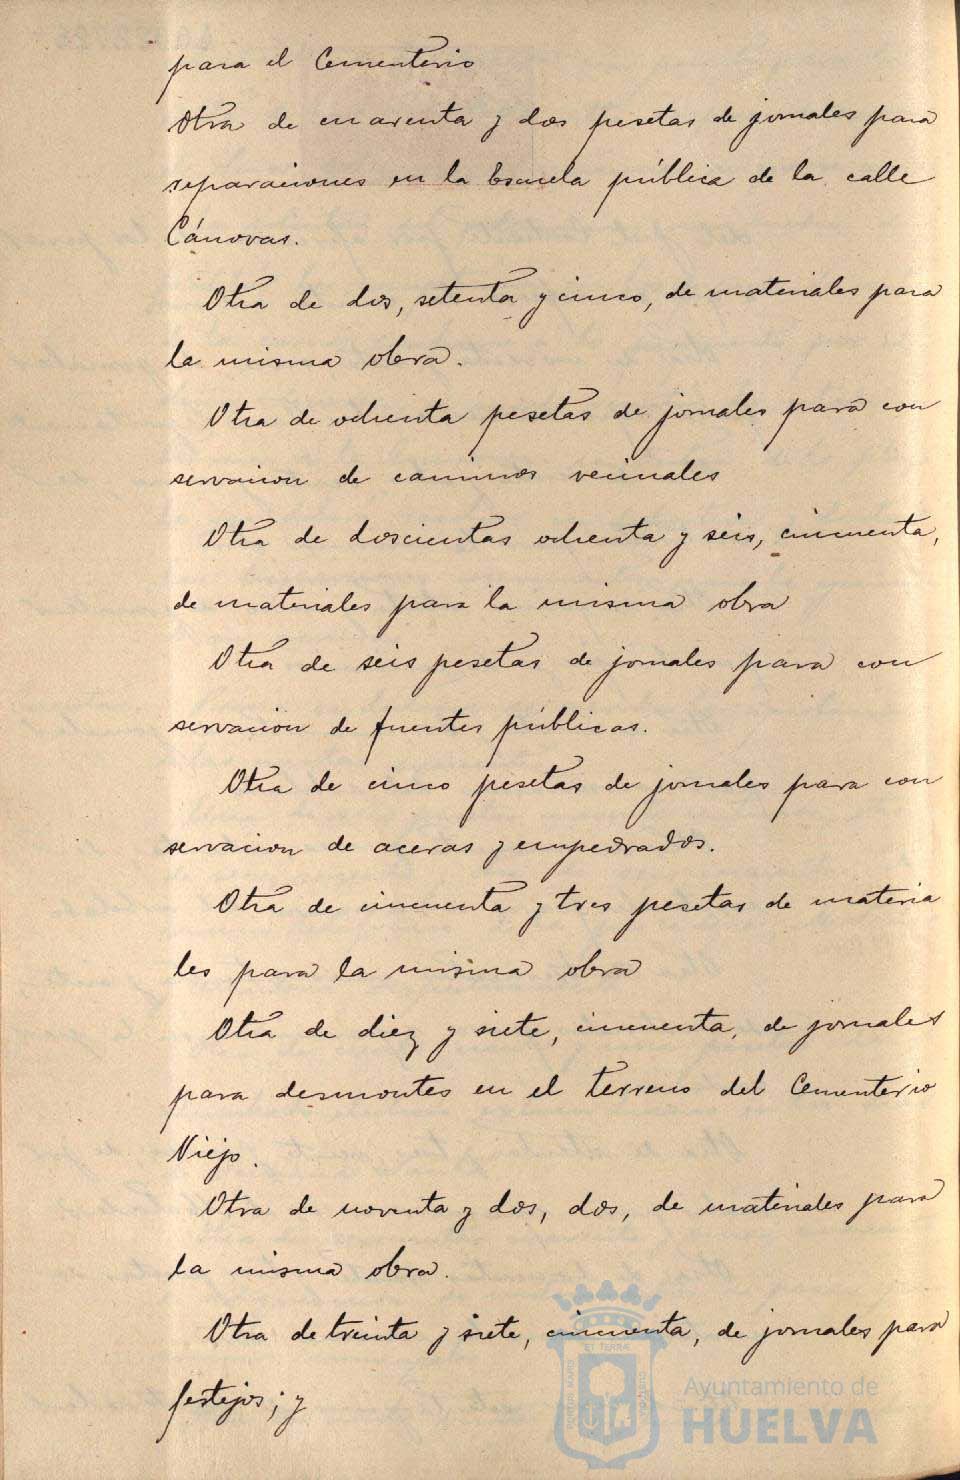 para el Cementerio
Otra de cuarenta y dos pesetas de jornales para
reparaciones en la Escuela pública de la calle
Cánovas.
Otra de dos, setenta y cinco, de materiales para
la misma obra.
Otra de ochenta pesetas de jornales para con
servacion de caminos vecinales
Otra de doscientas ochenta y seis, cincuenta,
de materiales para la misma obra
Otra de seis pesetas de jornales para con
servacion de fuentes públicas.
Otra de cinco pesetas de jornales para con
servacion de aceras y empedrados.
Otra de cincuenta y tres pesetas de materia
les para la misma obra
Otra de diez y siete, cincuenta, de jornales
para desmontes en el terreno del Cementerio
Viejo.
Otra de noventa y dos, dos, de materiales para
la misma obra.
Otra de treinta y siete, cincuenta, de jornales para
festejos; y
Ayuntamiento de
HUELVA